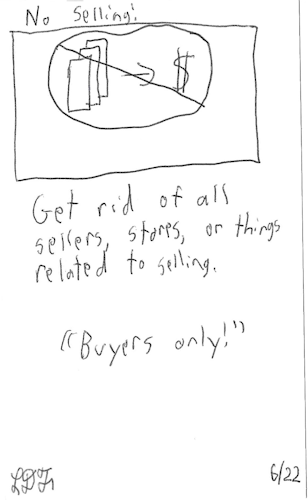 No Selling!
$
Get rid of all
sellers, stores, or things
related to selling.
"Buyers only!"
6/22